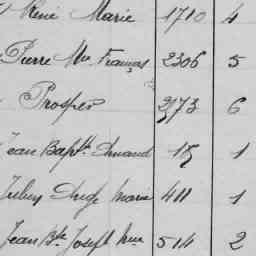 René Marie 1710 4
Pierre Mie François 2306 5
Prosper 2173 6
Jean Bapte Amand 15 1
Julien Ange Marie 411 1
Jean Bte Joseph Mie 514 2